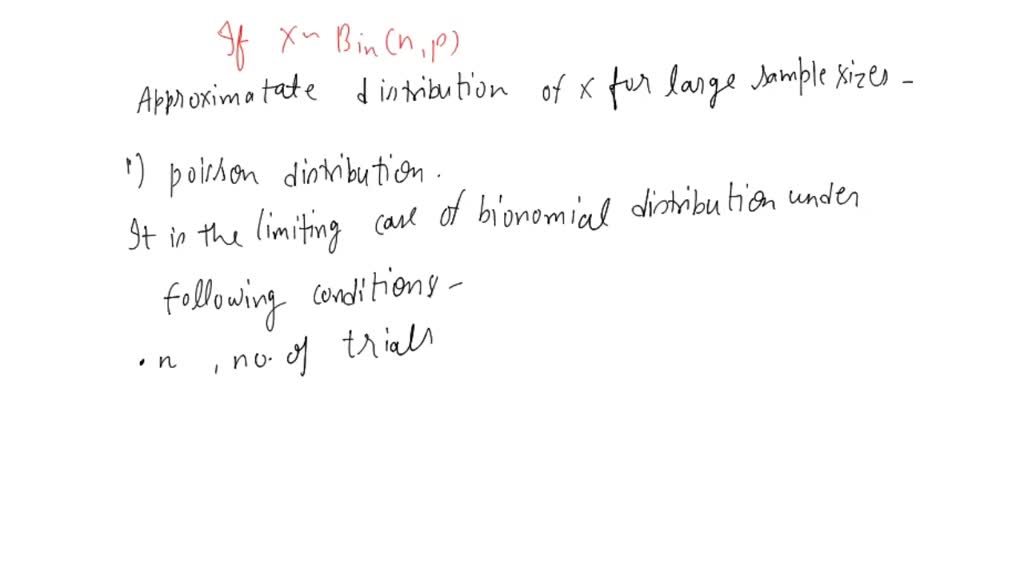 If X~ Bin(n,p)
Approximatate distribution of x for large sample sizes -
1) poisson distribution.
It is the limiting case of bionomial distribution under
following conditions -
• n , no. of trials